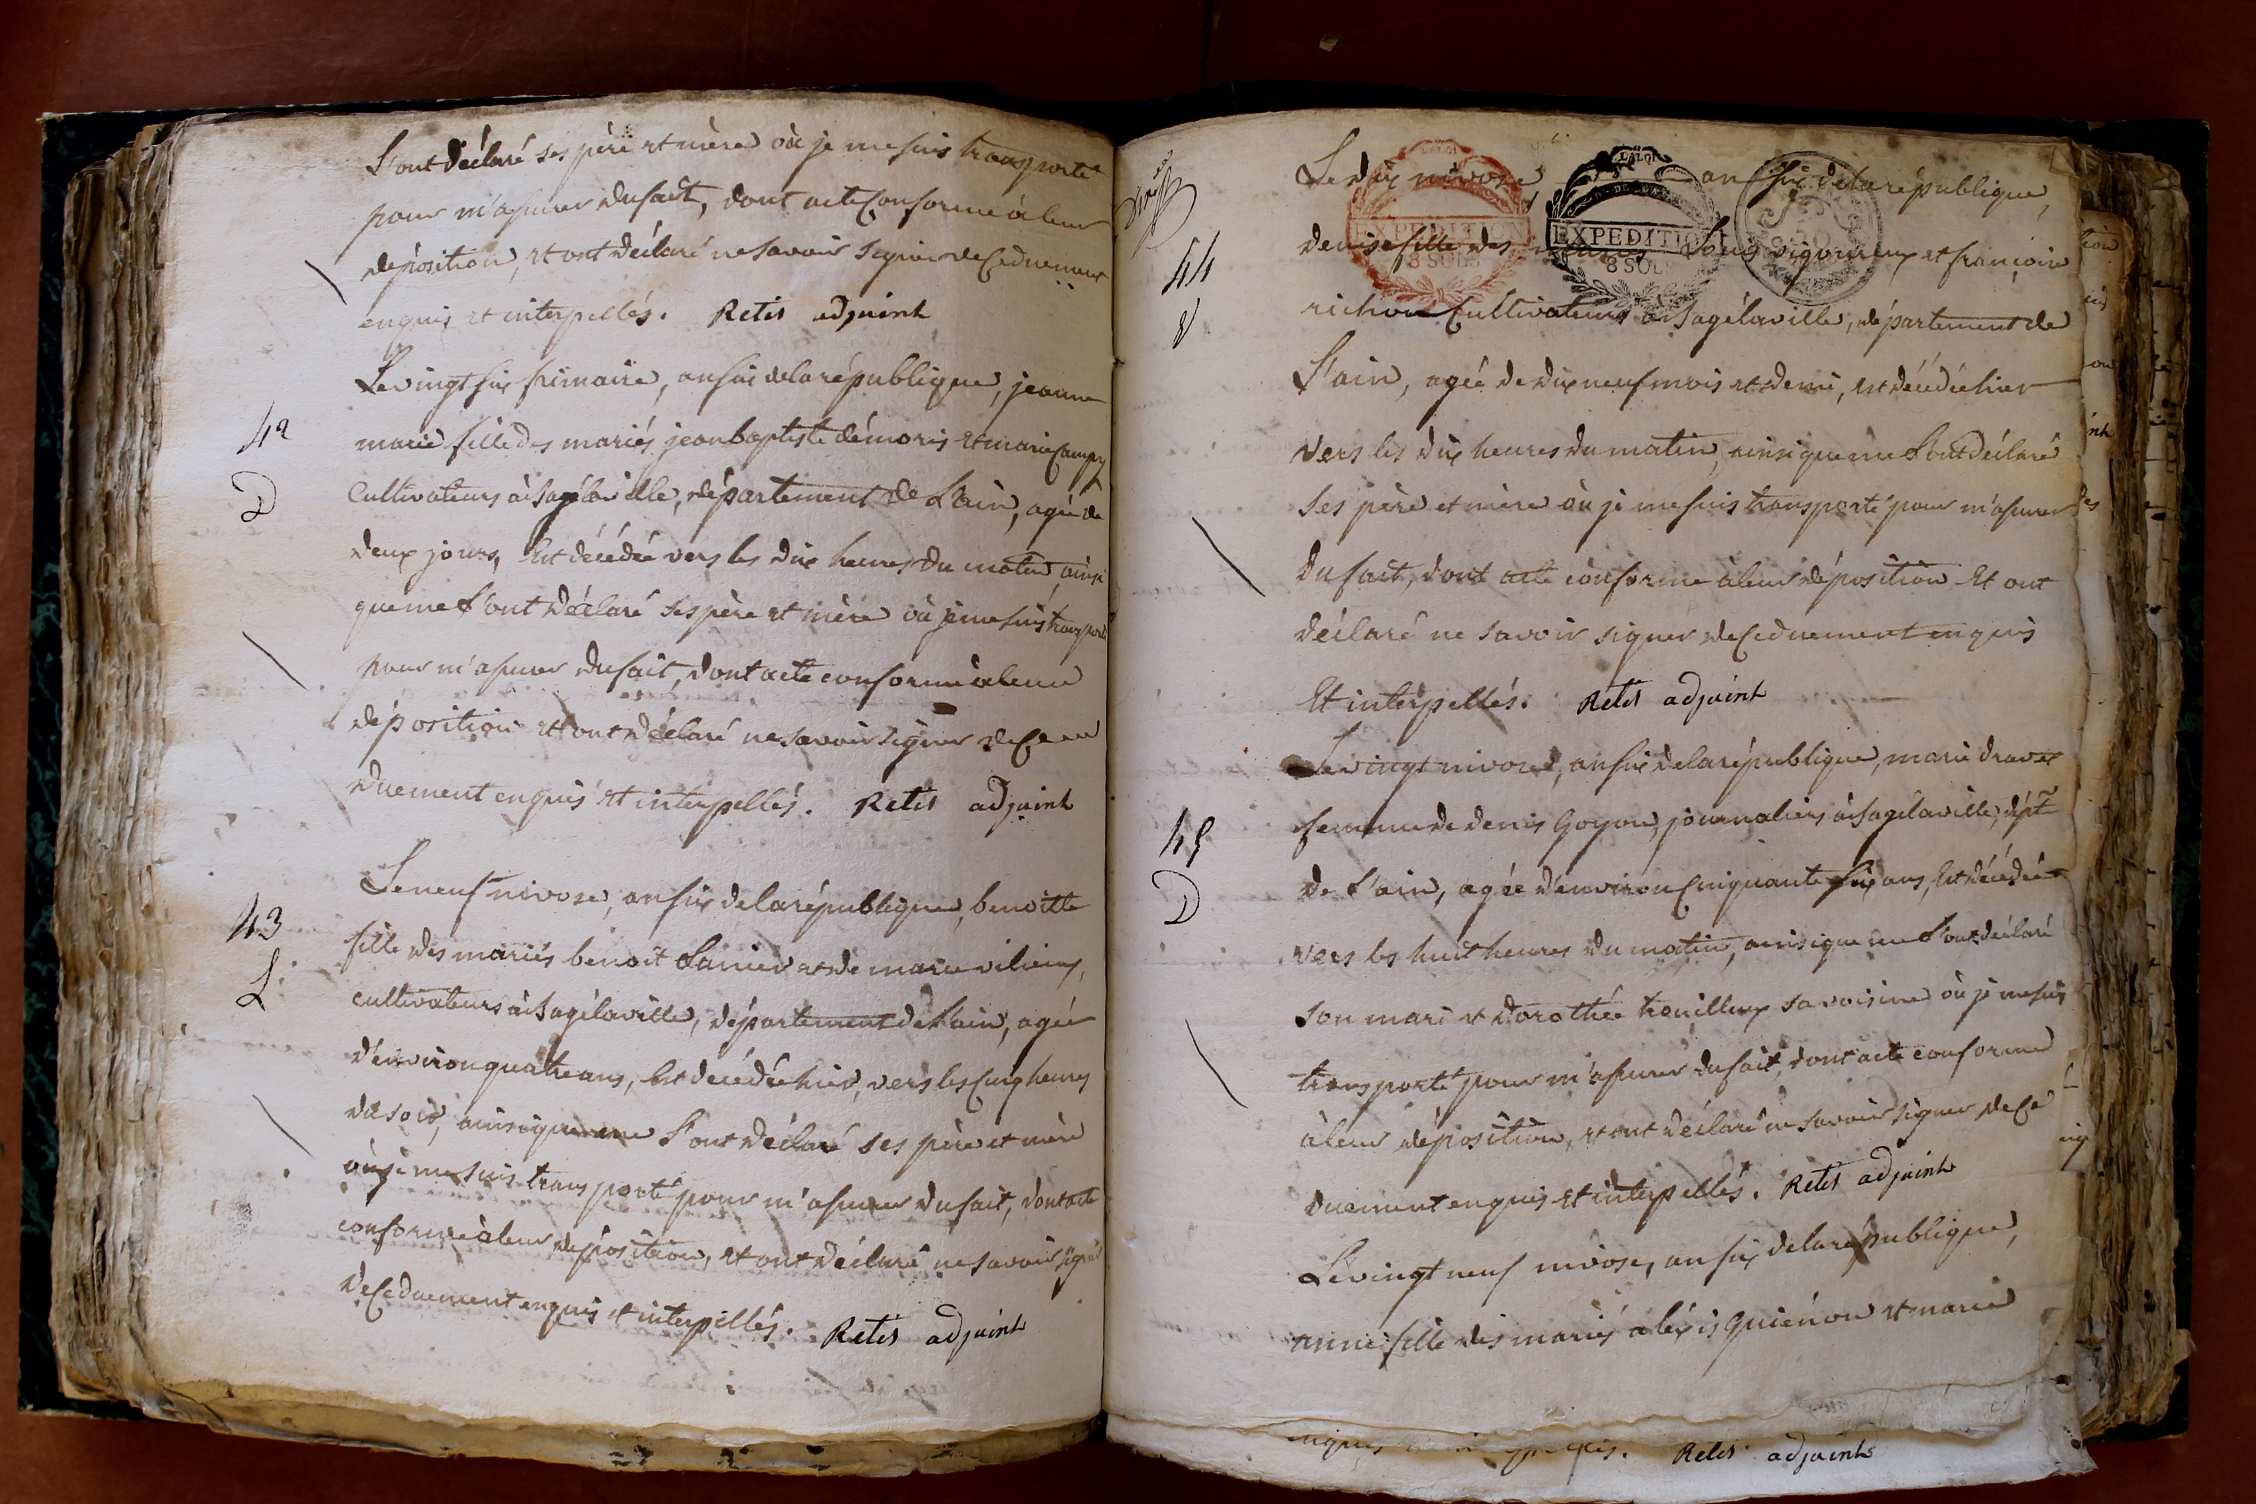 L'ont déclaré ses père et mère où je me suis transporté
pour m'assurer du fait, dont acte conforme à leur
déposition, et ont déclaré ne savoir signer de ce duement
enquis et interpellés. Retis adjoint
Le vingt six frimaire, an six de la république, jeanne
42
marie fille des mariés jean baptiste démoris et marie Campy
D
Cultivateurs à Sagélaville, département de L'ain, agée de
deux jours, Est décédée vers les dix heures du matin, ainsi
que me L'ont déclaré ses père et mère où je me suis transporté
pour m'assurer du fait, dont acte conforme à leur
déposition et ont déclaré ne savoir signer de ce
duement enquis et interpellés. Retis adjoint
Le neuf nivose, an six de la république, benoitte
43
fille des mariés benoit Lanier et de marie
L
cultivateurs à Sagélaville, département de L'ain, agée
d'environ quatre ans, Est décédée hier, vers les Cinq heures
du soir, ainsi que me L'ont déclaré ses père et mère
où je me suis transporté pour m'assurer du fait, dont acte
conforme à leur déposition, et ont déclaré ne savoir signer
de ce duement enquis et interpellés. Retis adjoint
Le dix nivose, an six de la république,
LA LOI
EXPEDITION
8 SOLS
LA LOI
EXPEDITION
8 SOLS
44
denise fille des mariés Louis vigoureux et françoise
richon Cultivateurs à Sagélaville, département de
L'ain, agée de dix neuf mois et demi, est décédée hier
vers les dix heures du matin, ainsi que me L'ont déclaré
ses père et mère où je me suis transporté pour m'assurer
du fait, dont acte conforme à leur déposition Et ont
déclaré ne savoir signer de ce duement enquis
Et interpellés. Retis adjoint
Le vingt nivose, an six de la république, marie
45
femme de denis Goyon, journaliers à Sagélaville, dépt
D
de L'ain, agée d'environ Cinquante six ans, Est décédée
vers les huit heures du matin, ainsi que me L'ont déclaré
son mari et Dorothée trouilloux sa voisine où je me suis
transporté pour m'assurer du fait, dont acte conforme
à leur déposition, et ont déclaré ne savoir signer de ce
duement enquis et interpellés. Retis adjoint
Le vingt neuf nivose, an six de la république,
anne fille des mariés aléxis quiénon et marie
enquis Retis adjoint